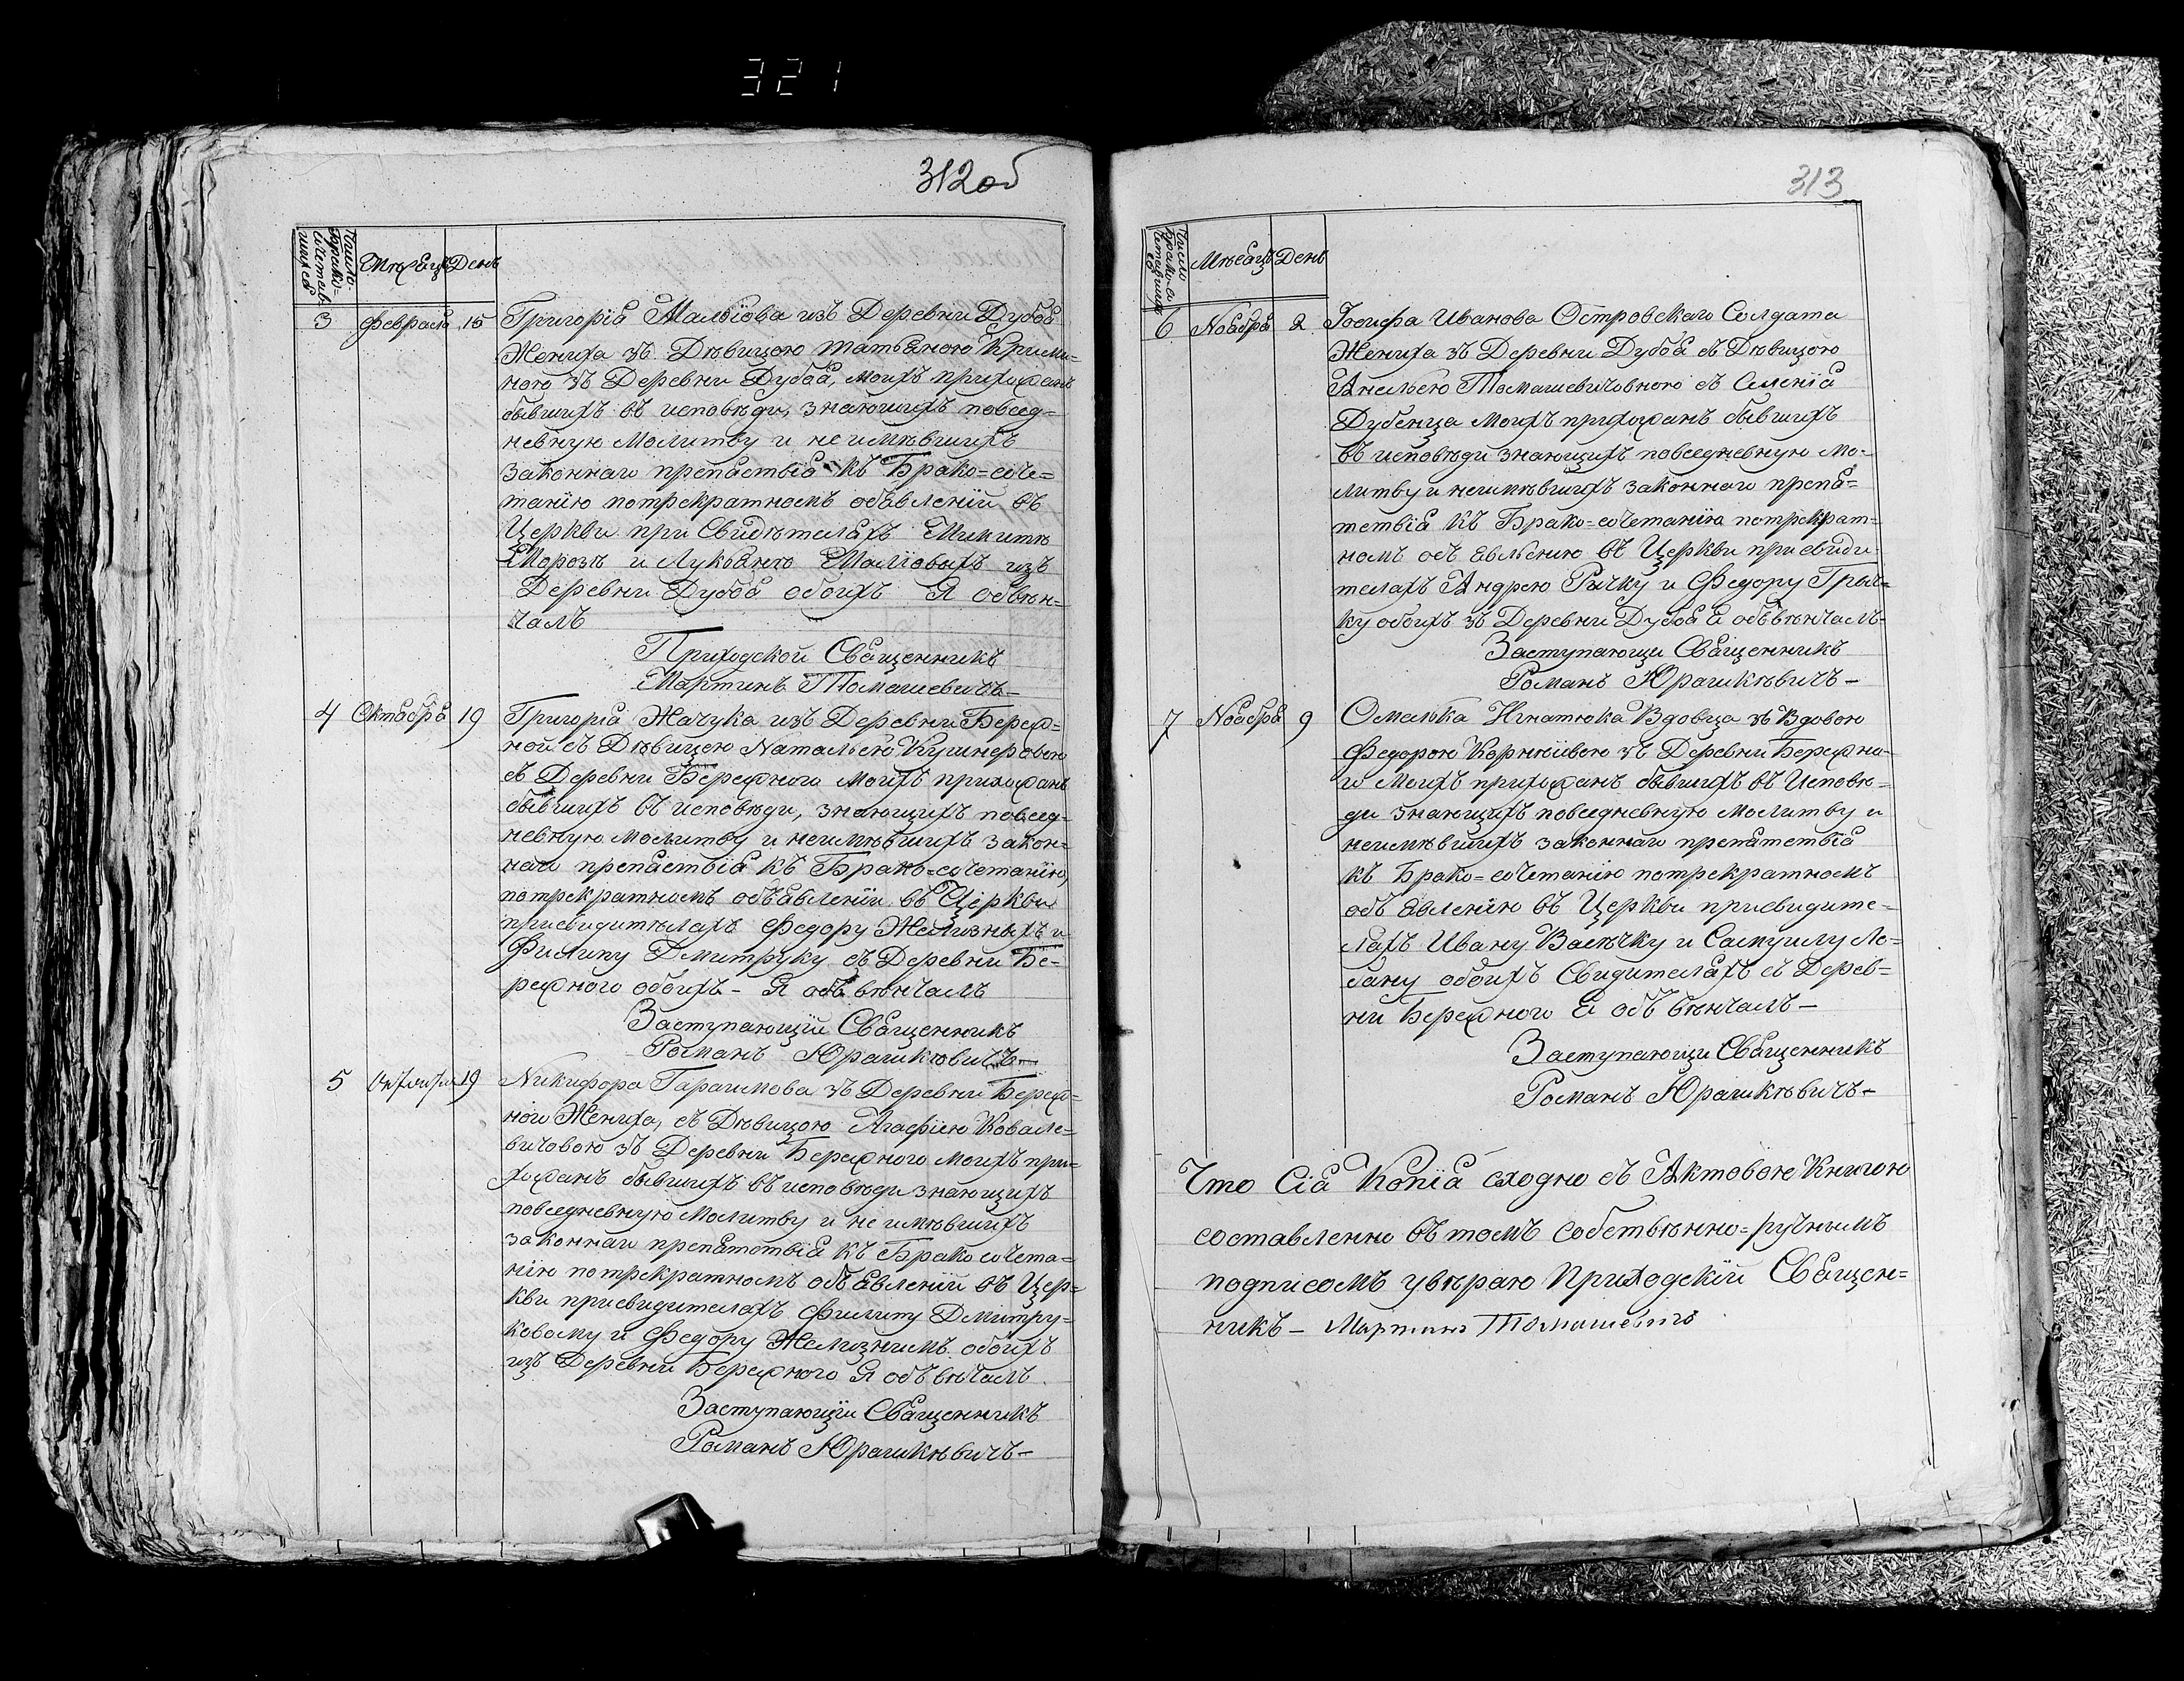 321
312об
Число Брако-сочетавшихся
Мѣсяцъ День
3 февраля 15 Григорія Малѣіова изъ Деревни Дубоя
Жениха зъ Дѣвицою Татьяною Крими-
ною зъ Деревни Дубоя, моихъ прихожанъ
бывшихъ въ исповѣди, знающихъ повсед-
невную Молитву и не имѣвшихъ
законнаго препястьія къ Брако=соче-
танїю потрекратномъ объявленїи въ
Церкви при Свидѣтеляхъ Микитѣ
Морозѣ и Лукьяню Маліовыхъ изъ
Деревни Дубоя обоихъ Я обвѣн-
чалъ
Приходской Священникъ
Мартинъ Томашевичъ
4 Октября 19 Григорія Жачука изъ Деревни Береж-
ной съ Дѣвицею Натальею Кушнеровою
съ Деревни Бережного моихъ прихожанъ
бывшихъ въ исповѣди, знающихъ повсед-
невную молитву и неимѣвшихъ закон-
наго препястьія къ Брако=сочетанїю,
потрекратномъ объявленїи въ Церкви
присвидитѣляхъ Федору Желизныхъ и
Филипу Дмитруку съ Деревни Бе-
режного обоихъ - Я объ вѣнчалъ
Заступающїи Священникъ
Романъ Юрашкѣвичъ
5 Октября 19 Никифора Гарашмова зъ Деревни Береж-
ной Жениха, съ Дѣвицою Агафіею Ковале-
вичовою зъ Деревни Бережного моихъ при-
хожанъ бывшихъ въ исповѣди знающихъ
повседневную Молитву и не имѣвшихъ
законнаго препятствія къ Брако сочета-
нію потрекратномъ объ явленїи въ Цер-
кви присвидителяхъ Филипу Дмитру-
ковому и Федору Желизнымъ обоихъ
изъ Деревни Бережного Я объ вѣчалъ
Заступающїи Священникъ
Романъ Юрашкѣвичъ-
313
Число Брако-сочетавшихся
Мѣсяцъ День
6 Ноября 2 Іосифа Иванова Островскаго Солдата
Жениха зъ Деревни Дубоя съ Дѣвицою
Анелѣею Томашевичовною съ Селенія
Дубенца моихъ прихожанъ бывшихъ
въ исповѣди знающихъ повседневную Мо-
литву и неимѣвшихъ законнаго препя-
тствія къ Брако=сочетанїю потрекрат-
номъ объ явленію въ Церкви присвиди-
теляхъ Андрею Рычку и Федору Грыч-
ку обоихъ зъ Деревни Дубоя Я объвѣнчалъ-
Заступающи Священникъ
Романъ Юрашкѣвичъ-
7 Ноября 9 Омелька Игнатюка Вдовца зъ Вдовою
Федорою Корнѣивою зъ Деревни Бережна-
го Моихъ прихожанъ бывшихъ въ Исповѣ-
ди знающихъ повседневную Молитву и
неимѣвшихъ законнаго препятствія
къ Брако=сочетанію потрекратномъ
объ явленію въ Церкви присвидите-
ляхъ Ивану Васѣчку и Самуилу Ло-
бану обоихъ Свидителяхъ съ Дерев-
ни Бережного Я объ вѣнчалъ-
Заступающи Священникъ
Романъ Юрашкѣвичъ-
Что Сія Копія сходно съ Актовою Книгою
составленно въ томъ собствѣнно=ручнымъ
подписомъ увѣраю Приходскїй Священ-
никъ- Мартинъ Томашевичъ